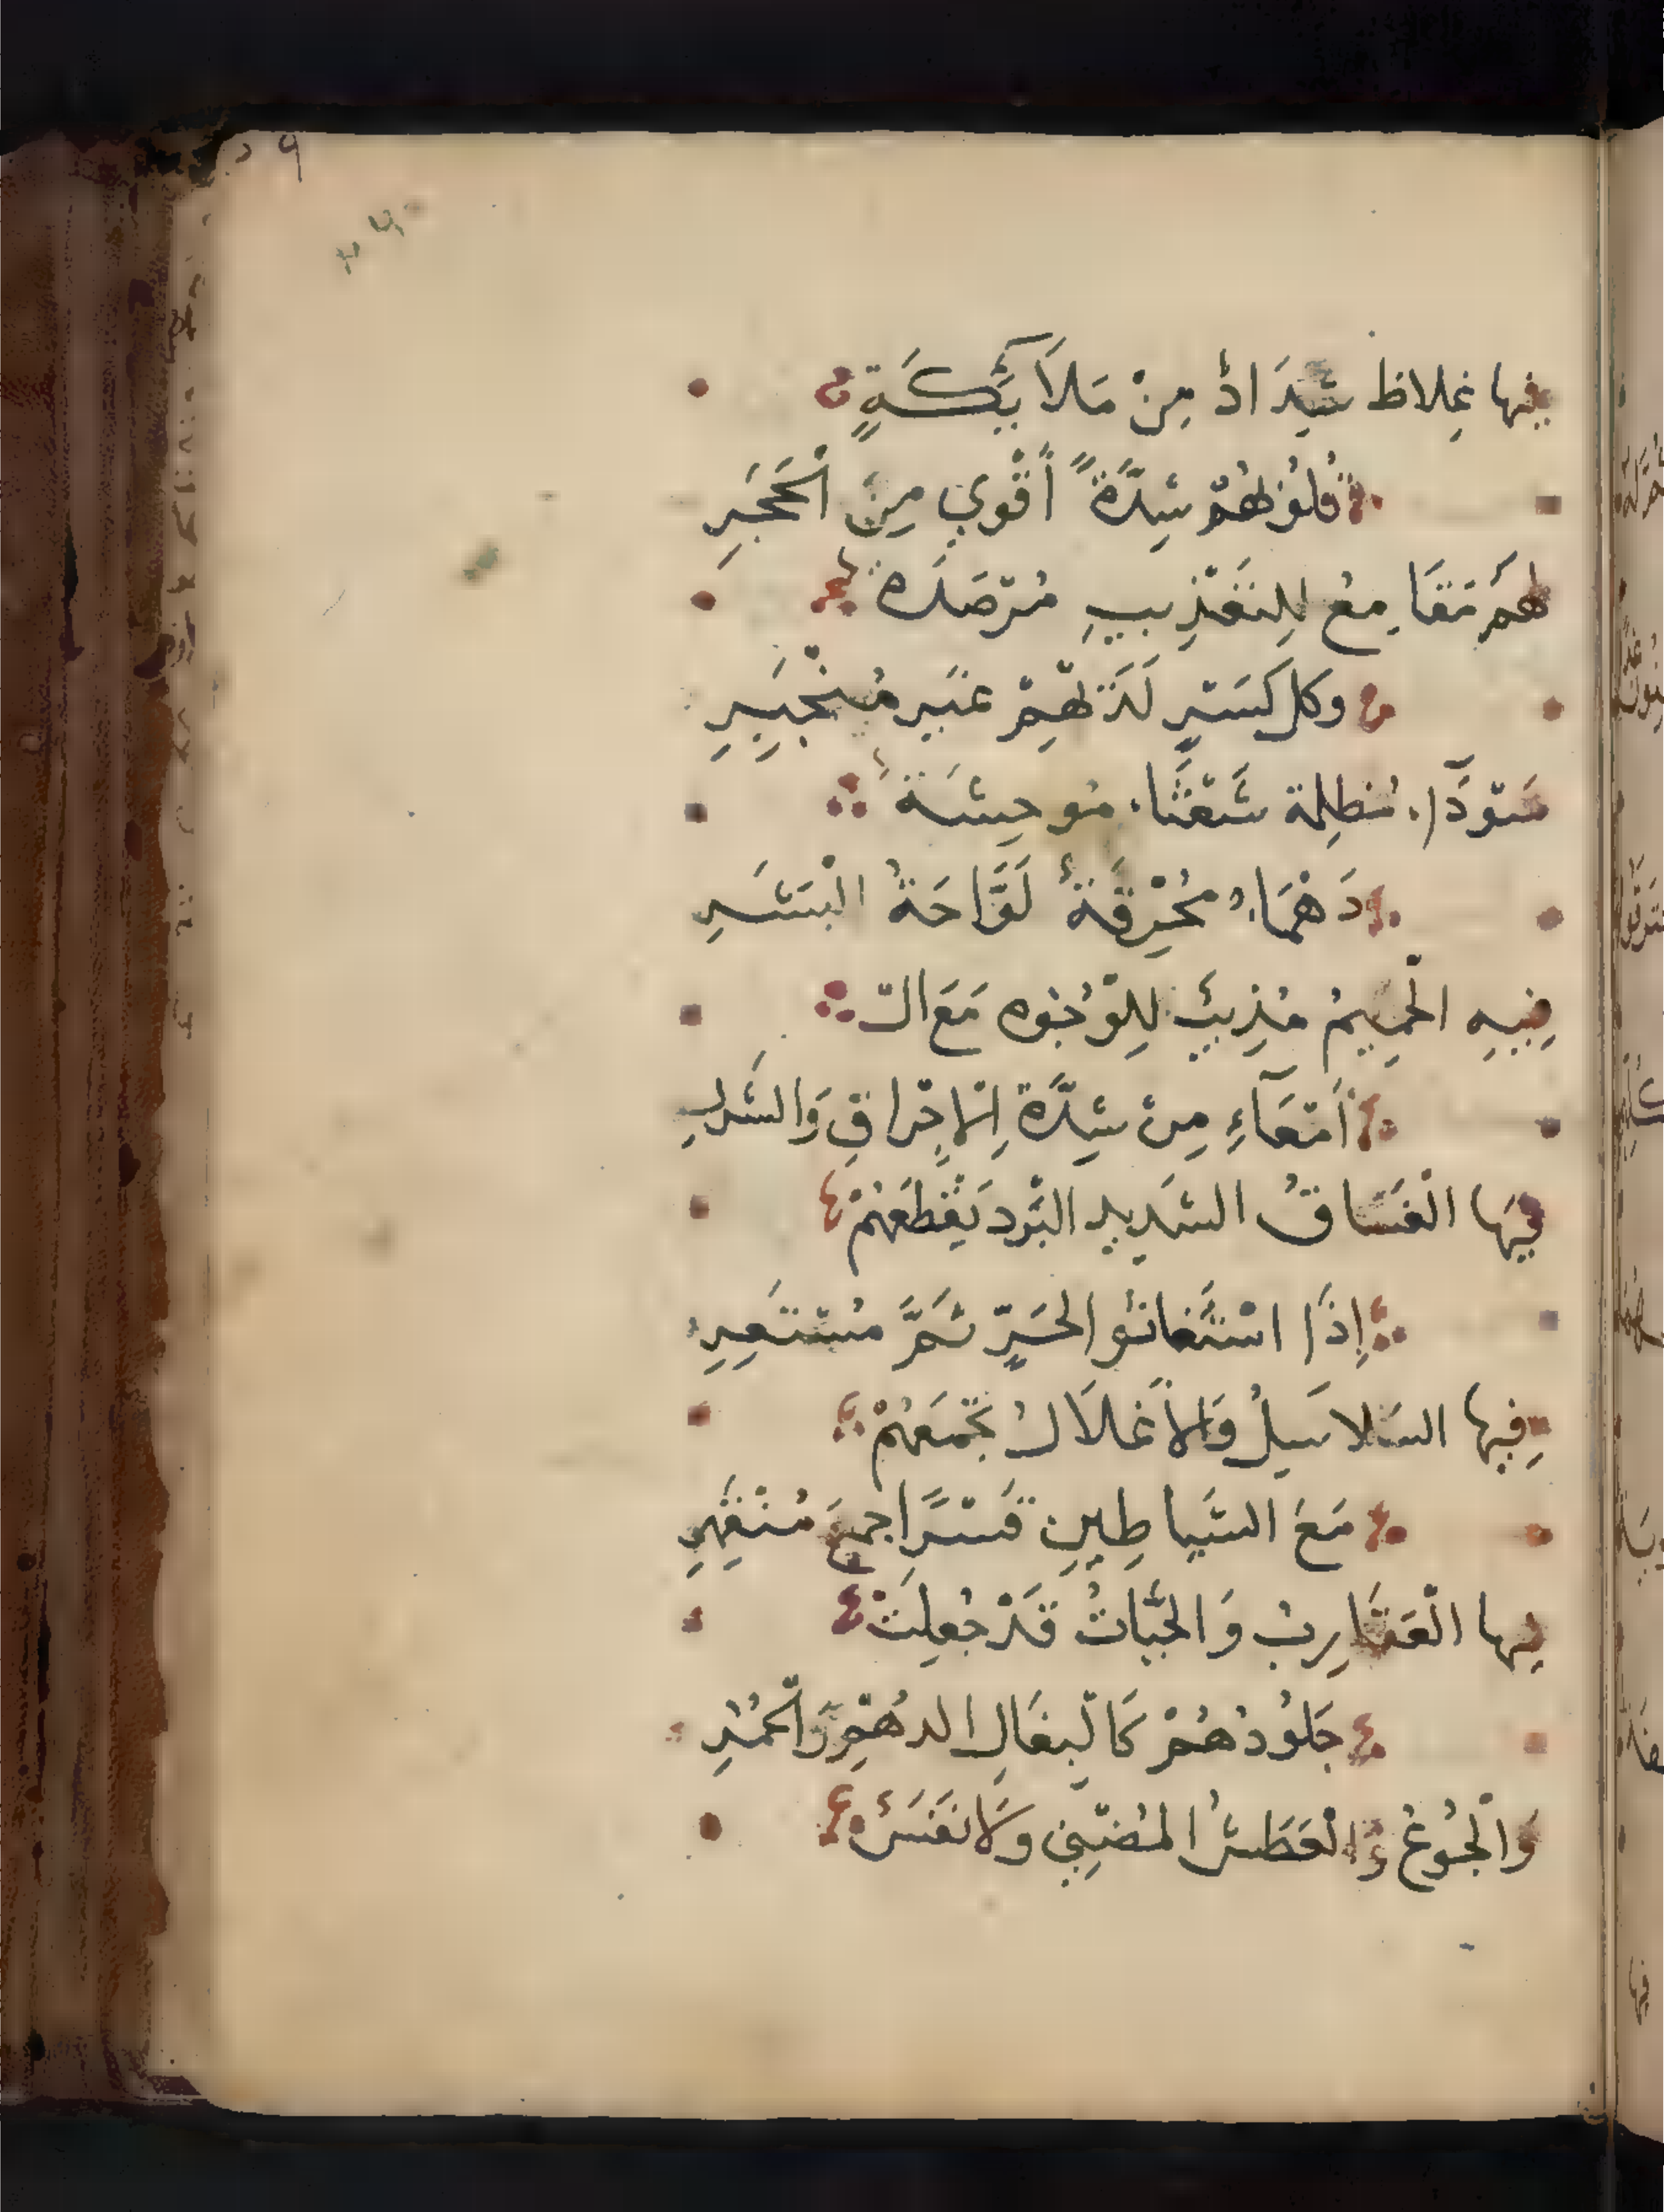 فيها غِلاظ شِدَادٌ مِنْ مَلَائِكَةٍ
قُلُوْبُهُمْ شِدَّةً أَقْوي مِنَ الْحَجَرِ
لهم مَقَامِعُ لِلتَعْذِيبِ مُرْصَدَة
وكل كَسْرٍ لَدَيْهِمْ غَيرِ مُنْجَبِرِ
سَوْدَاء مُظلِمة شَعْثَاء مُوحِشَة
دَهْمَاءُ مُحْرِقَةٌ لَوَّاحَةُ الْبَشَرِ
فِيهِ الْحَمِيمُ مُذِيبٌ لِلْوُجُوه مَعَ الْ
أَمْعَآءِ مِن شِدَّةِ الْإحْرَاقِ وَالشرَرِ
فِيهَا الْغَسَاقُ الشَدِيدِ الْبَرْد يَقْطَعُهُمْ
إِذَا اسْتَغَاثُوا الحَرِّ ثُمَّ مُسْتَعِرِ
فِيها السَلاسِلُ وَالأَغْلَالُ تَجْمَعُهُمْ
مَعَ الشَيَاطِينِ قَسْرًا جمعَ مُنْقَهِرِ
فِيها الْعَقَارِبُ وَالْحَيَّاتُ قَدْ جُعِلَتْ
جَلُوْدُهُمْ كَالْبِغَالِ الدهْمِ وَالْحُمُرِ
وَالْجُوْعُ وَالْعَطَشُ الْمُضْنِي وَلَا نَفَسٌ